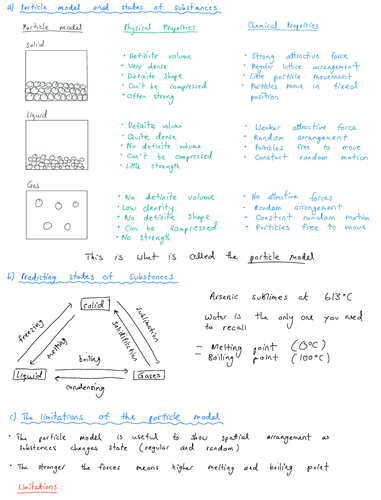 a) Particle model and states of substances
Particle model Physical Properties Chemical Properties
Solid
• Definite volume
• Very dense
• Definite shape
• Can't be compressed
• Often strong
• Strong attractive force
• Regular lattice arrangement
• Little particle movement
• Particles move in fixed
position
Liquid
• Definite volume
• Quite dense
• No definite volume
• Can't be compressed
• Little strength
• Weaker attractive force
• Random arrangement
• Particles free to move
• Constant random motion
Gas
• No definite volume
• Low density
• No definite shape
• Can be compressed
• No strength
• No attractive forces
- Random arrangement
• Constant random motion
• Particles free to move
This is what is called the particle model
b) Predicting states of substances
solid
freezing
melting
sublimation
boiling
Liquid
Gases
condensing
Arsenic sublimes at 613°C
Water is the only one you need
to recall
- Melting point (0°C)
- Boiling point (100°C)
c) The limitations of the particle model
• The particle model is useful to show spatial arrangement as
substances changes state (regular and random)
• The stronger the forces means higher melting and boiling point
Limitations: